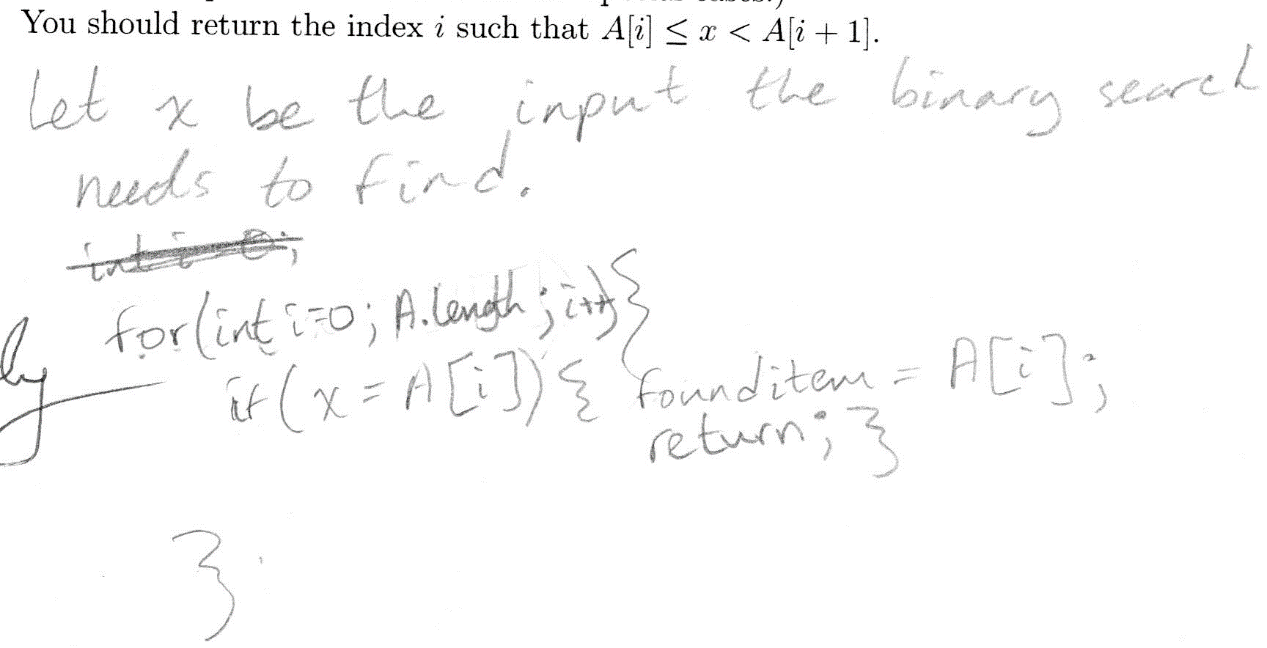 You should return the index i such that A[i] ≤ x < A[i + 1].
Let x be the input the binary search
needs to find.
int i=0;
for(int i=0; A.length; i++){
if(x=A[i]){ founditem = A[i];
return; }
}